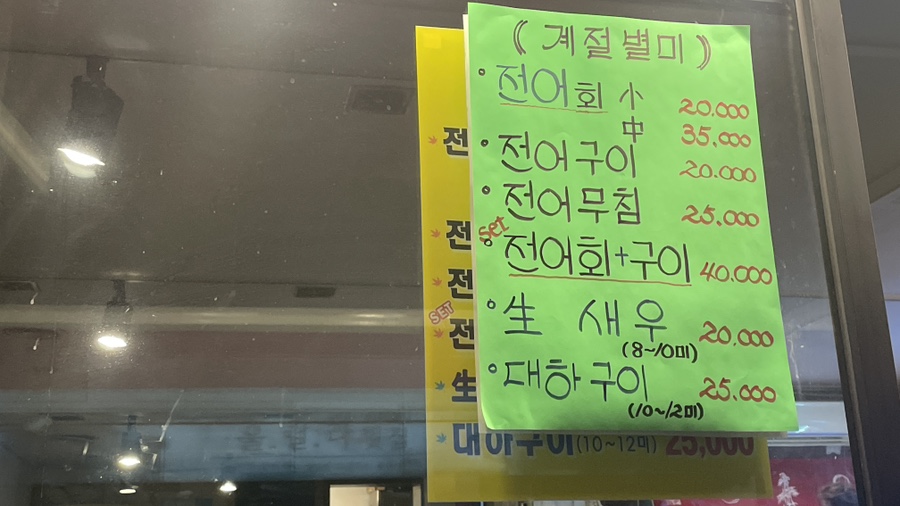 (계절별미)
전어회 小 20.000
中 35.000
전어구이 20.000
전어무침 25.000
set
전어회+구이 40.000
生 새우 20.000
(8~10미)
대하구이 25.000
(10~12미)
전
전
전
SET
전
生
대하구이(10~12미) 25,000